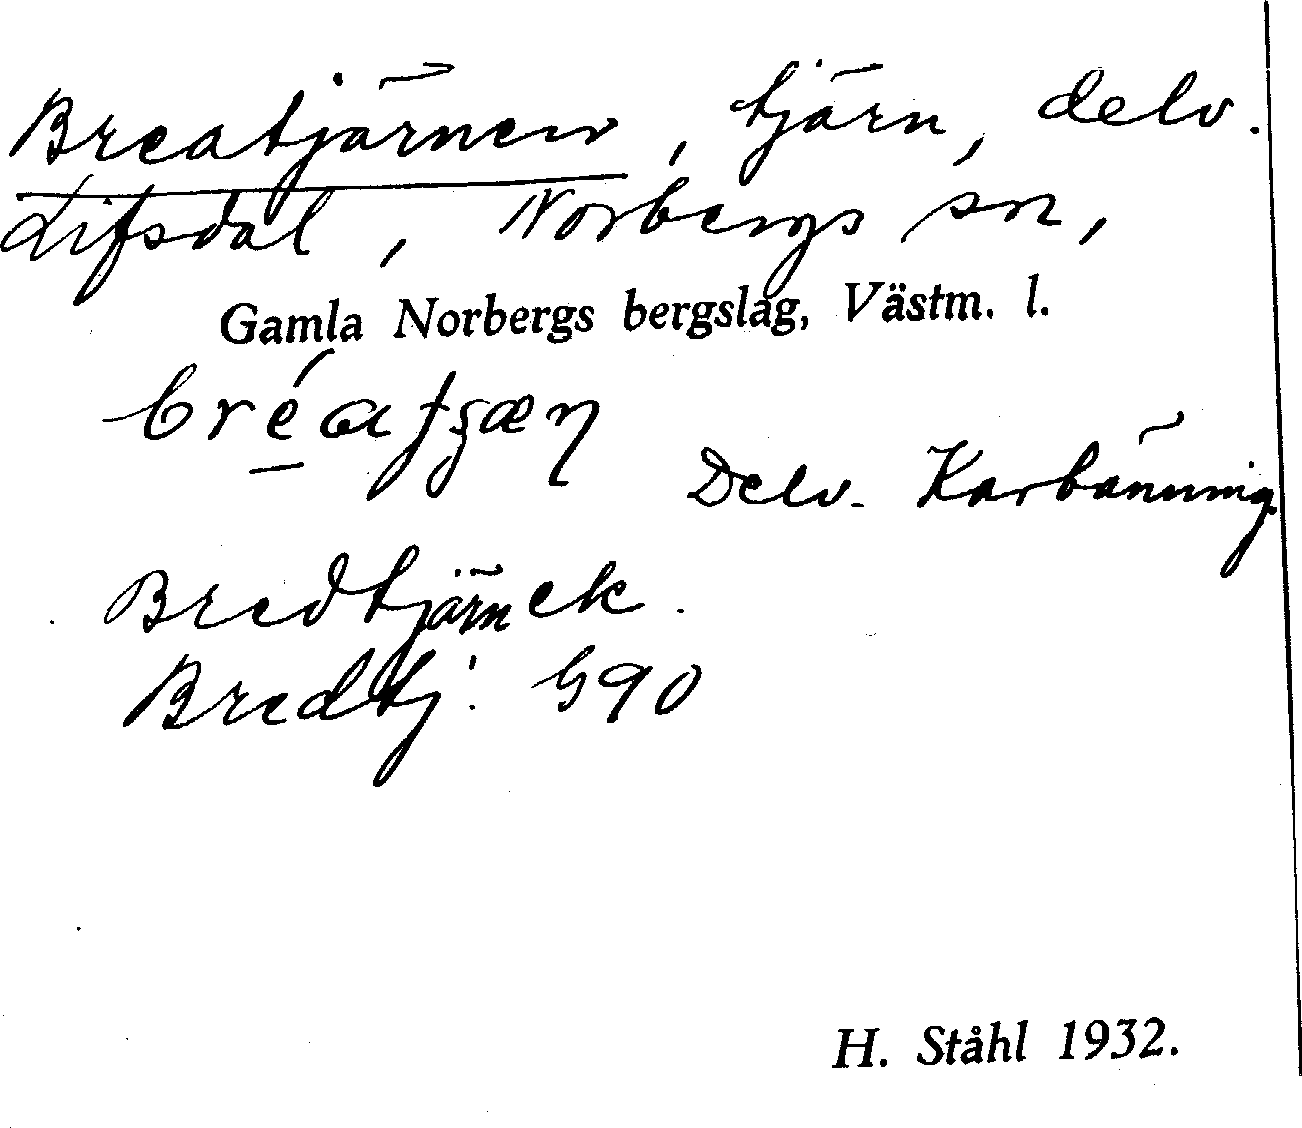 Breatjärnen, tjärn, delv.
Lifsdal, Norbergs sn,
Gamla Norbergs bergslag, Västm. l.
Delv. Karbänning.
Bredtjärn ek
Bredtj. G90
H. Ståhl 1932.